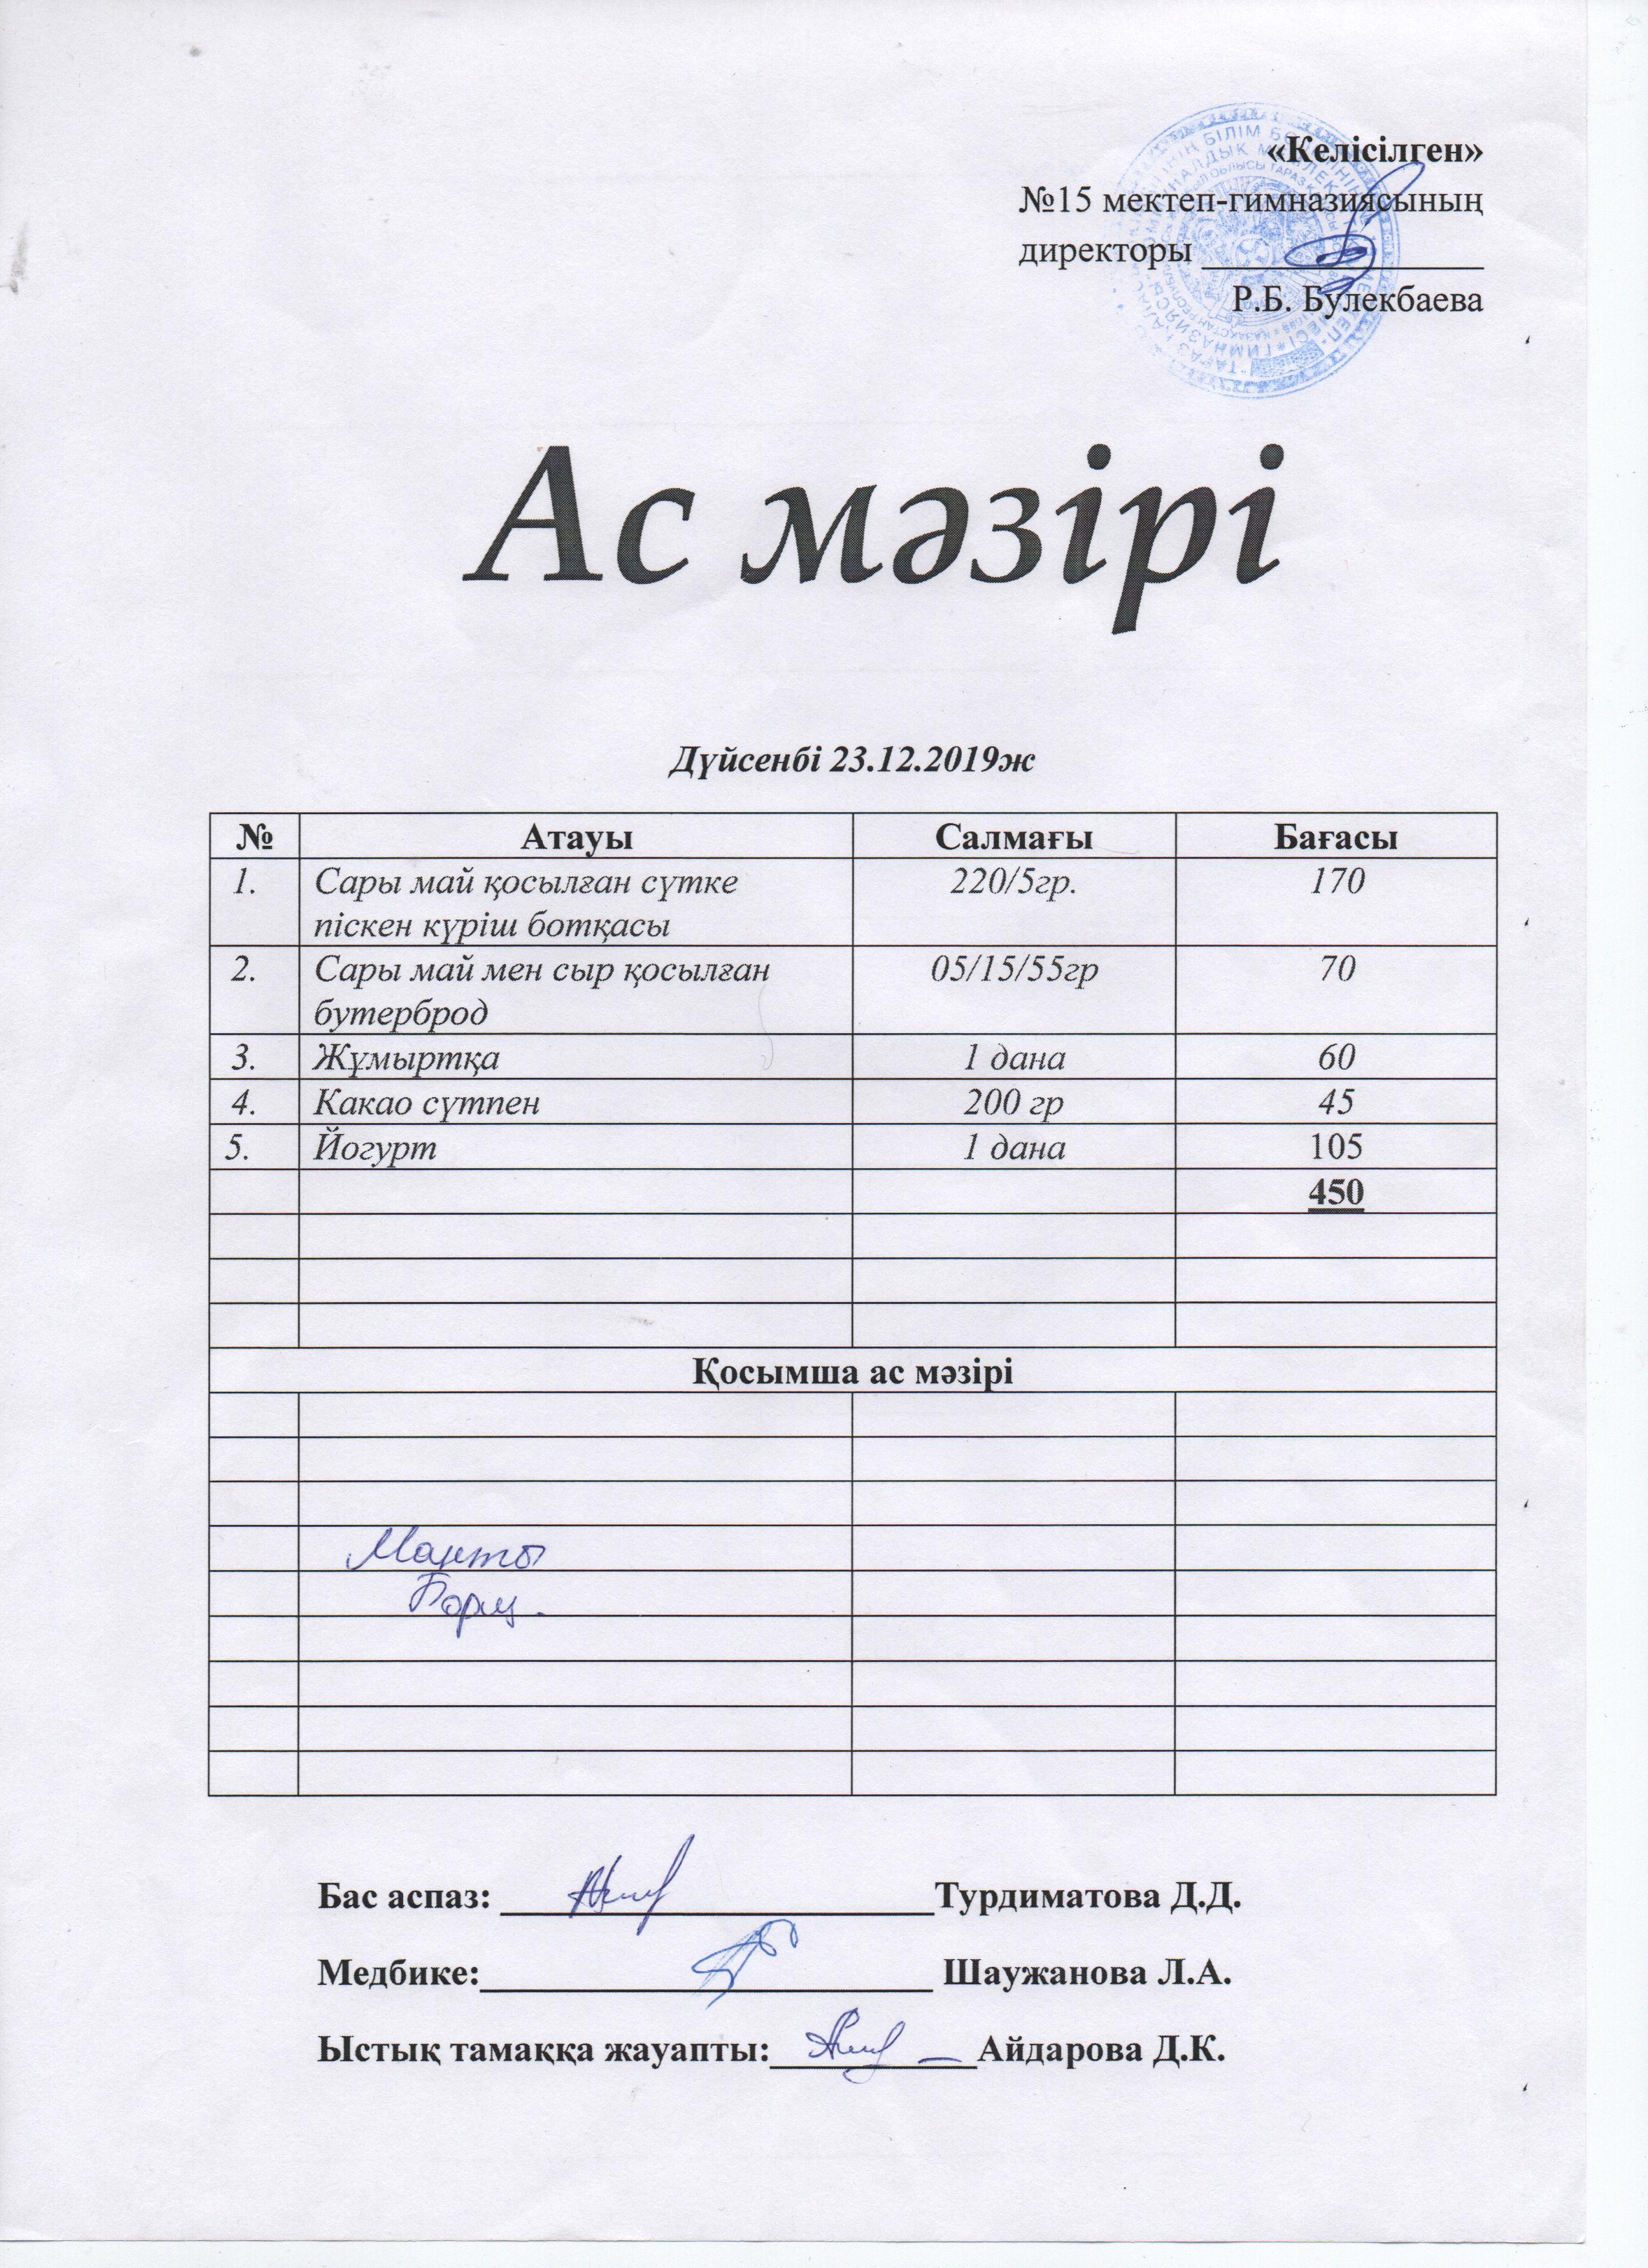 «Келісілген»
№15 мектеп-гимназиясының
директоры
Р.Б. Булекбаева
Ас мәзірі
Дүйсенбі 23.12.2019ж
№ Атауы Салмағы Бағасы
1. Сары май қосылған сүтке 220/5гр. 170
піскен күріш ботқасы
2. Сары май мен сыр қосылған 05/15/55гр 70
бутерброд
3. Жұмыртқа 1 дана 60
4. Какао сүтпен 200 гр 45
5. Йогурт 1 дана 105
450
Қосымша ас мәзірі
Манты
Борщ.
Бас аспаз: Турдиматова Д.Д.
Медбике: Шаужанова Л.А.
Ыстық тамаққа жауапты: Айдарова Д.К.